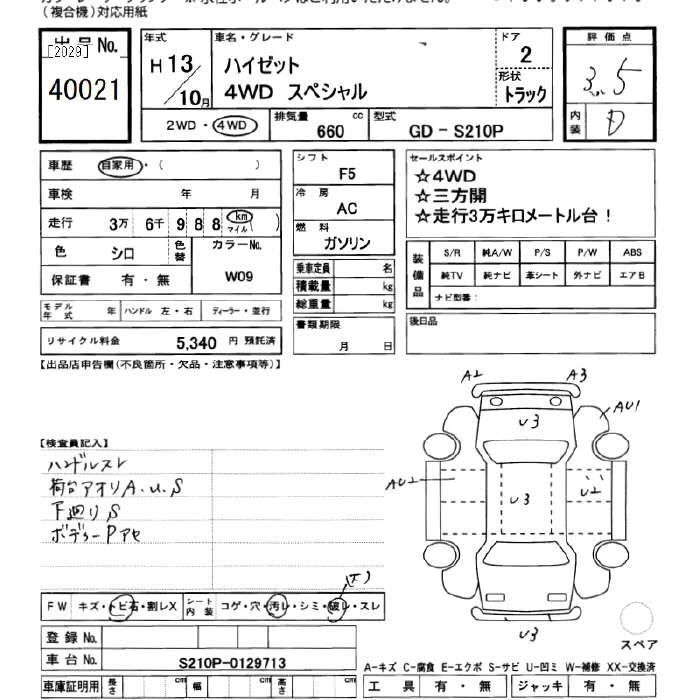 （複合機）対応用紙
出品No.
[2029]
40021
年式
H13/10月
車名・グレード
ハイゼット
4WD スペシャル
ドア
2
形状
トラック
評価点
3.5
内装
D
2WD・4WD
排気量 660 cc
型式 GD - S210P
車歴 自家用・( )
車検 年 月
走行 3万 6千 9 8 8 km マイル ( )
色 シロ 色替 カラーNo. W09
保証書 有・無
モデル年式 年 ハンドル 左・右 ディーラー・並行
リサイクル料金 5,340 円 預託済
シフト F5
冷房 AC
燃料 ガソリン
乗車定員 名
積載量 kg
総重量 kg
書類期限
月 日
セールスポイント
☆4WD
☆三方開
☆走行3万キロメートル台！
装備品
S/R 純A/W P/S P/W ABS
純TV 純ナビ 革シート 外ナビ エアB
ナビ型番：
後日品
【出品店申告欄(不良箇所・欠品・注意事項等)】
【検査員記入】
ハンドルスレ
荷台アオリA.U.S
下廻りS
ボディーPアセ
A2 A3
U3
AU1
AU2
U3
U2
U3
FW キズ・トビ石・割レX シート内装 コゲ・穴・汚レ・シミ・破レ・スレ
登録No.
車台No. S210P-0129713
車庫証明用 長さ cm 幅 cm 高さ cm
スペア
A-キズ C-腐食 E-エクボ S-サビ U-凹ミ W-補修 XX-交換済
工具 有・無 ジャッキ 有・無